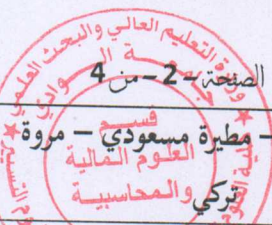 وزارة التعليم العالي والبحث العلمي
الصفحة - 2 - من 4
قسم
– مطيرة مسعودي – مروة
العلوم المالية
والمحاسبية
تركي